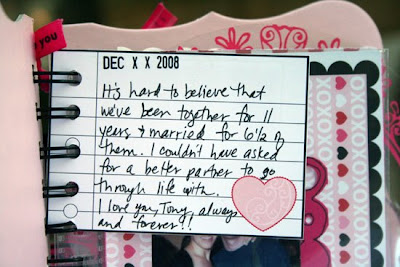 YOU
DEC X X 2008
It's hard to believe that
we've been together for 11
years & married for 6 1/2 of
them. I couldn't have asked
for a better partner to go
through life with.
I love you, Tony, always
and forever!!
XOXOXO